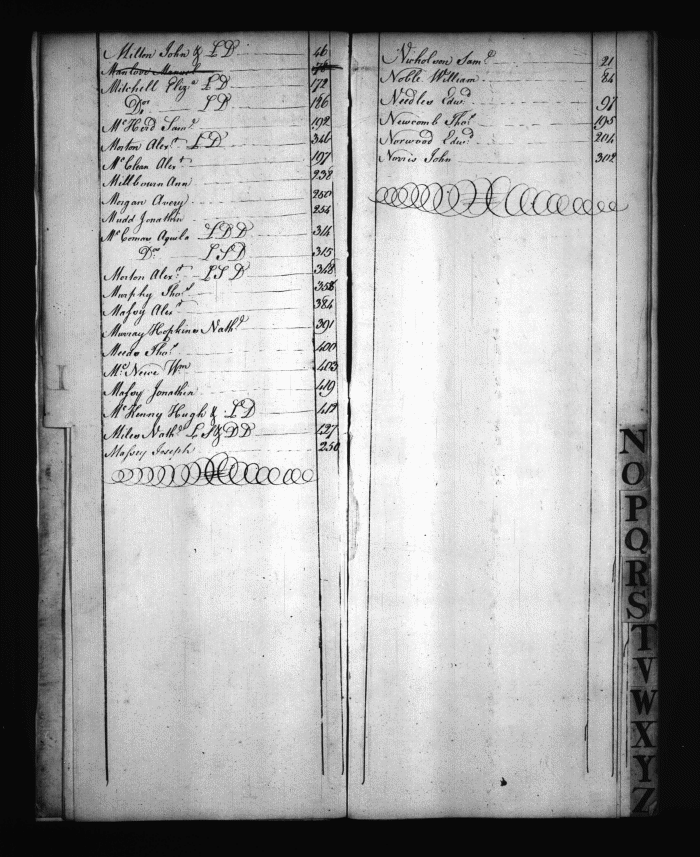 Milton John & L D 46
Manlove Manuel
Mitchell Eliz.a L D 172
Do. L D 186
Mc Herd Sam.l 192
Morton Alex.r L D 346
Mc Clean Alex.r 197
Millbourn Ann 238
Morgan Avery 250
Mudd Jonathin 254
Mc Comas Aquila L D D 314
Do. L S D 315
Morton Alex.r L S D 348
Murphy Thos. 358
Massy Alex.r 384
Murray Hopkins Nath.l 391
Meeds Thos. 400
Mc. Neive Wm 403
Massy Jonathin 419
Mc Henny Hugh & L D 412
Miles Nath.l L S & D D 427
Massey Joseph 250
Nicholson Sam.l 21
Noble William 84
Needles Edwd. 97
Newcomb Thos. 195
Norwood Edwd. 204
Norris John 302
N
O
P
Q
R
S
T
V
W
X
Y
Z